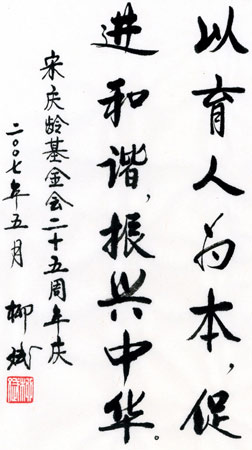 以育人为本，促
进和谐，振兴中华。
宋庆龄基金会二十五周年庆
二〇〇七年五月 柳斌